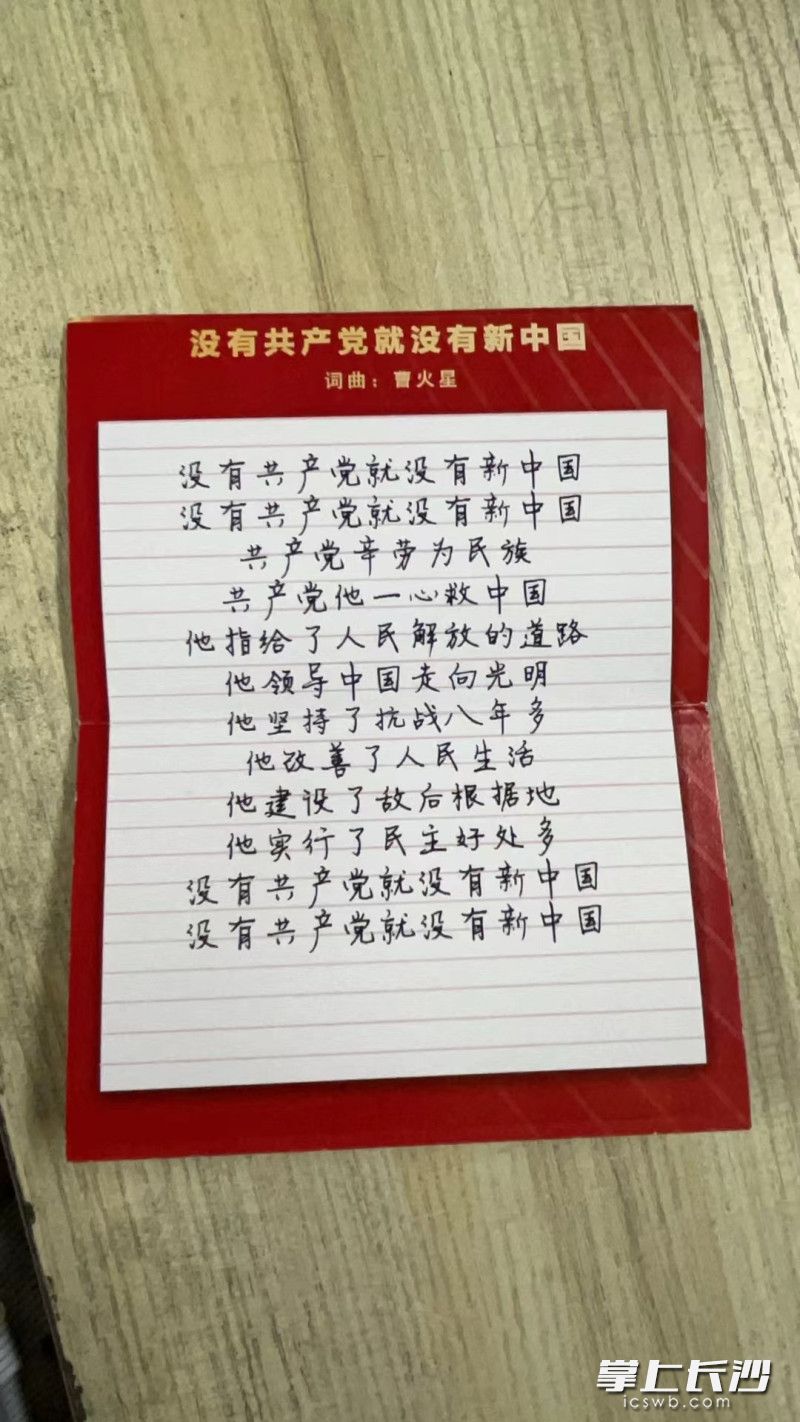 没有共产党就没有新中国
词曲：曹火星
没有共产党就没有新中国
没有共产党就没有新中国
共产党辛劳为民族
共产党他一心救中国
他指给了人民解放的道路
他领导中国走向光明
他坚持了抗战八年多
他改善了人民生活
他建设了敌后根据地
他实行了民主好处多
没有共产党就没有新中国
没有共产党就没有新中国
掌上长沙
icswb.com